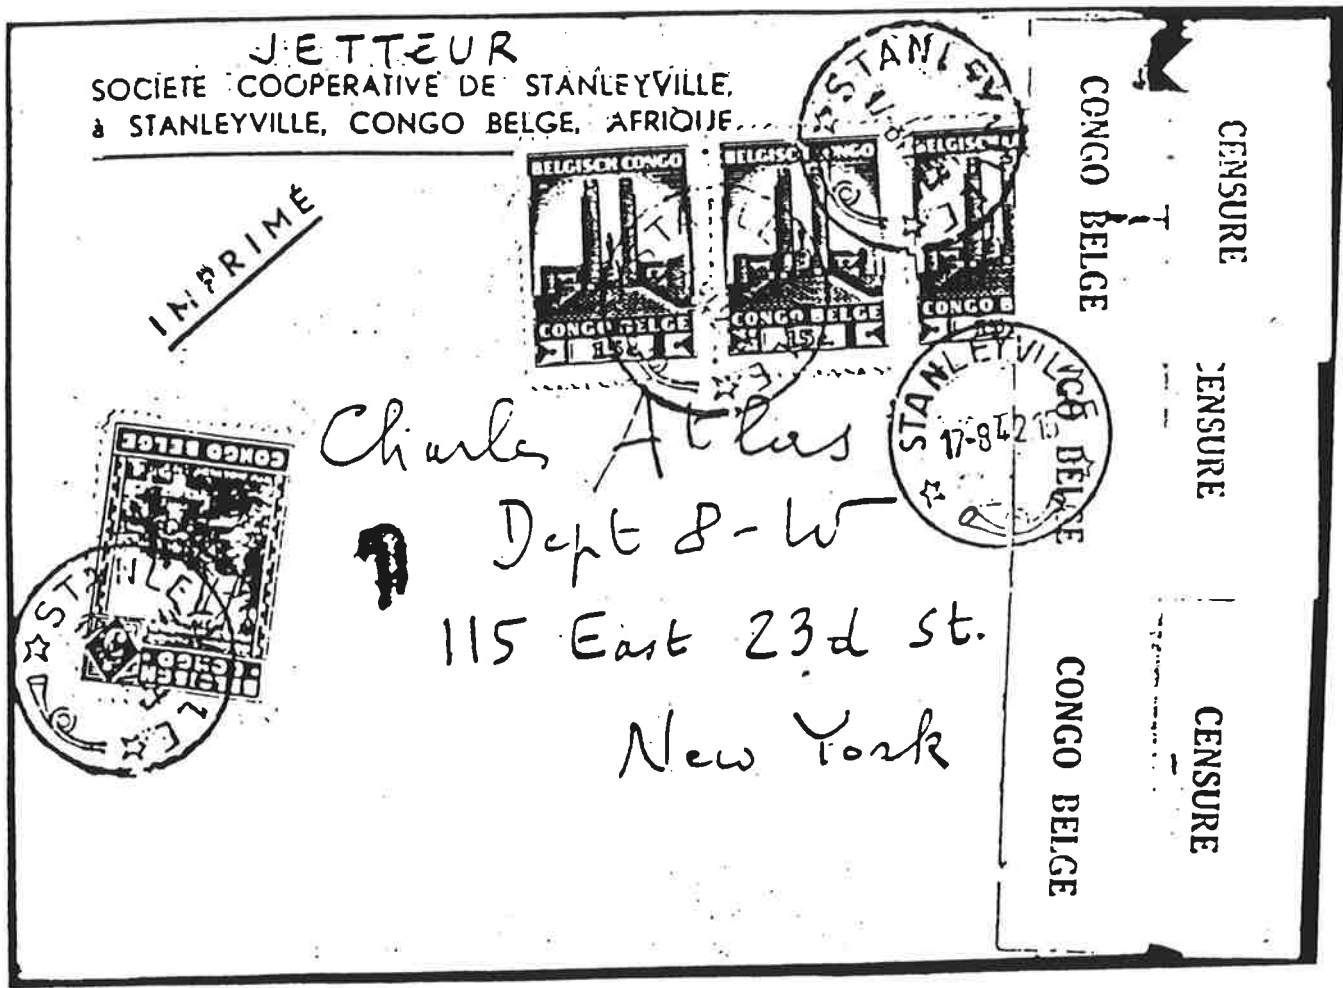 JETTEUR
SOCIETE COOPERATIVE DE STANLEYVILLE,
à STANLEYVILLE, CONGO BELGE, AFRIQUE
IMPRIMÉ
BELGISCH CONGO
CONGO BELGE
15c
BELGISCH CONGO
CONGO BELGE
15c
BELGISCH
CONGO B
STANLEYV
STANLEYVILLE
17-8 42 15
CONGO BELGE
BELGISCH CONGO
STANLEY
Charles Atlas
Dept 8-W
115 East 23d St.
New York
CONGO BELGE
CENSURE
CONGO BELGE
CENSURE
CONGO BELGE
CENSURE